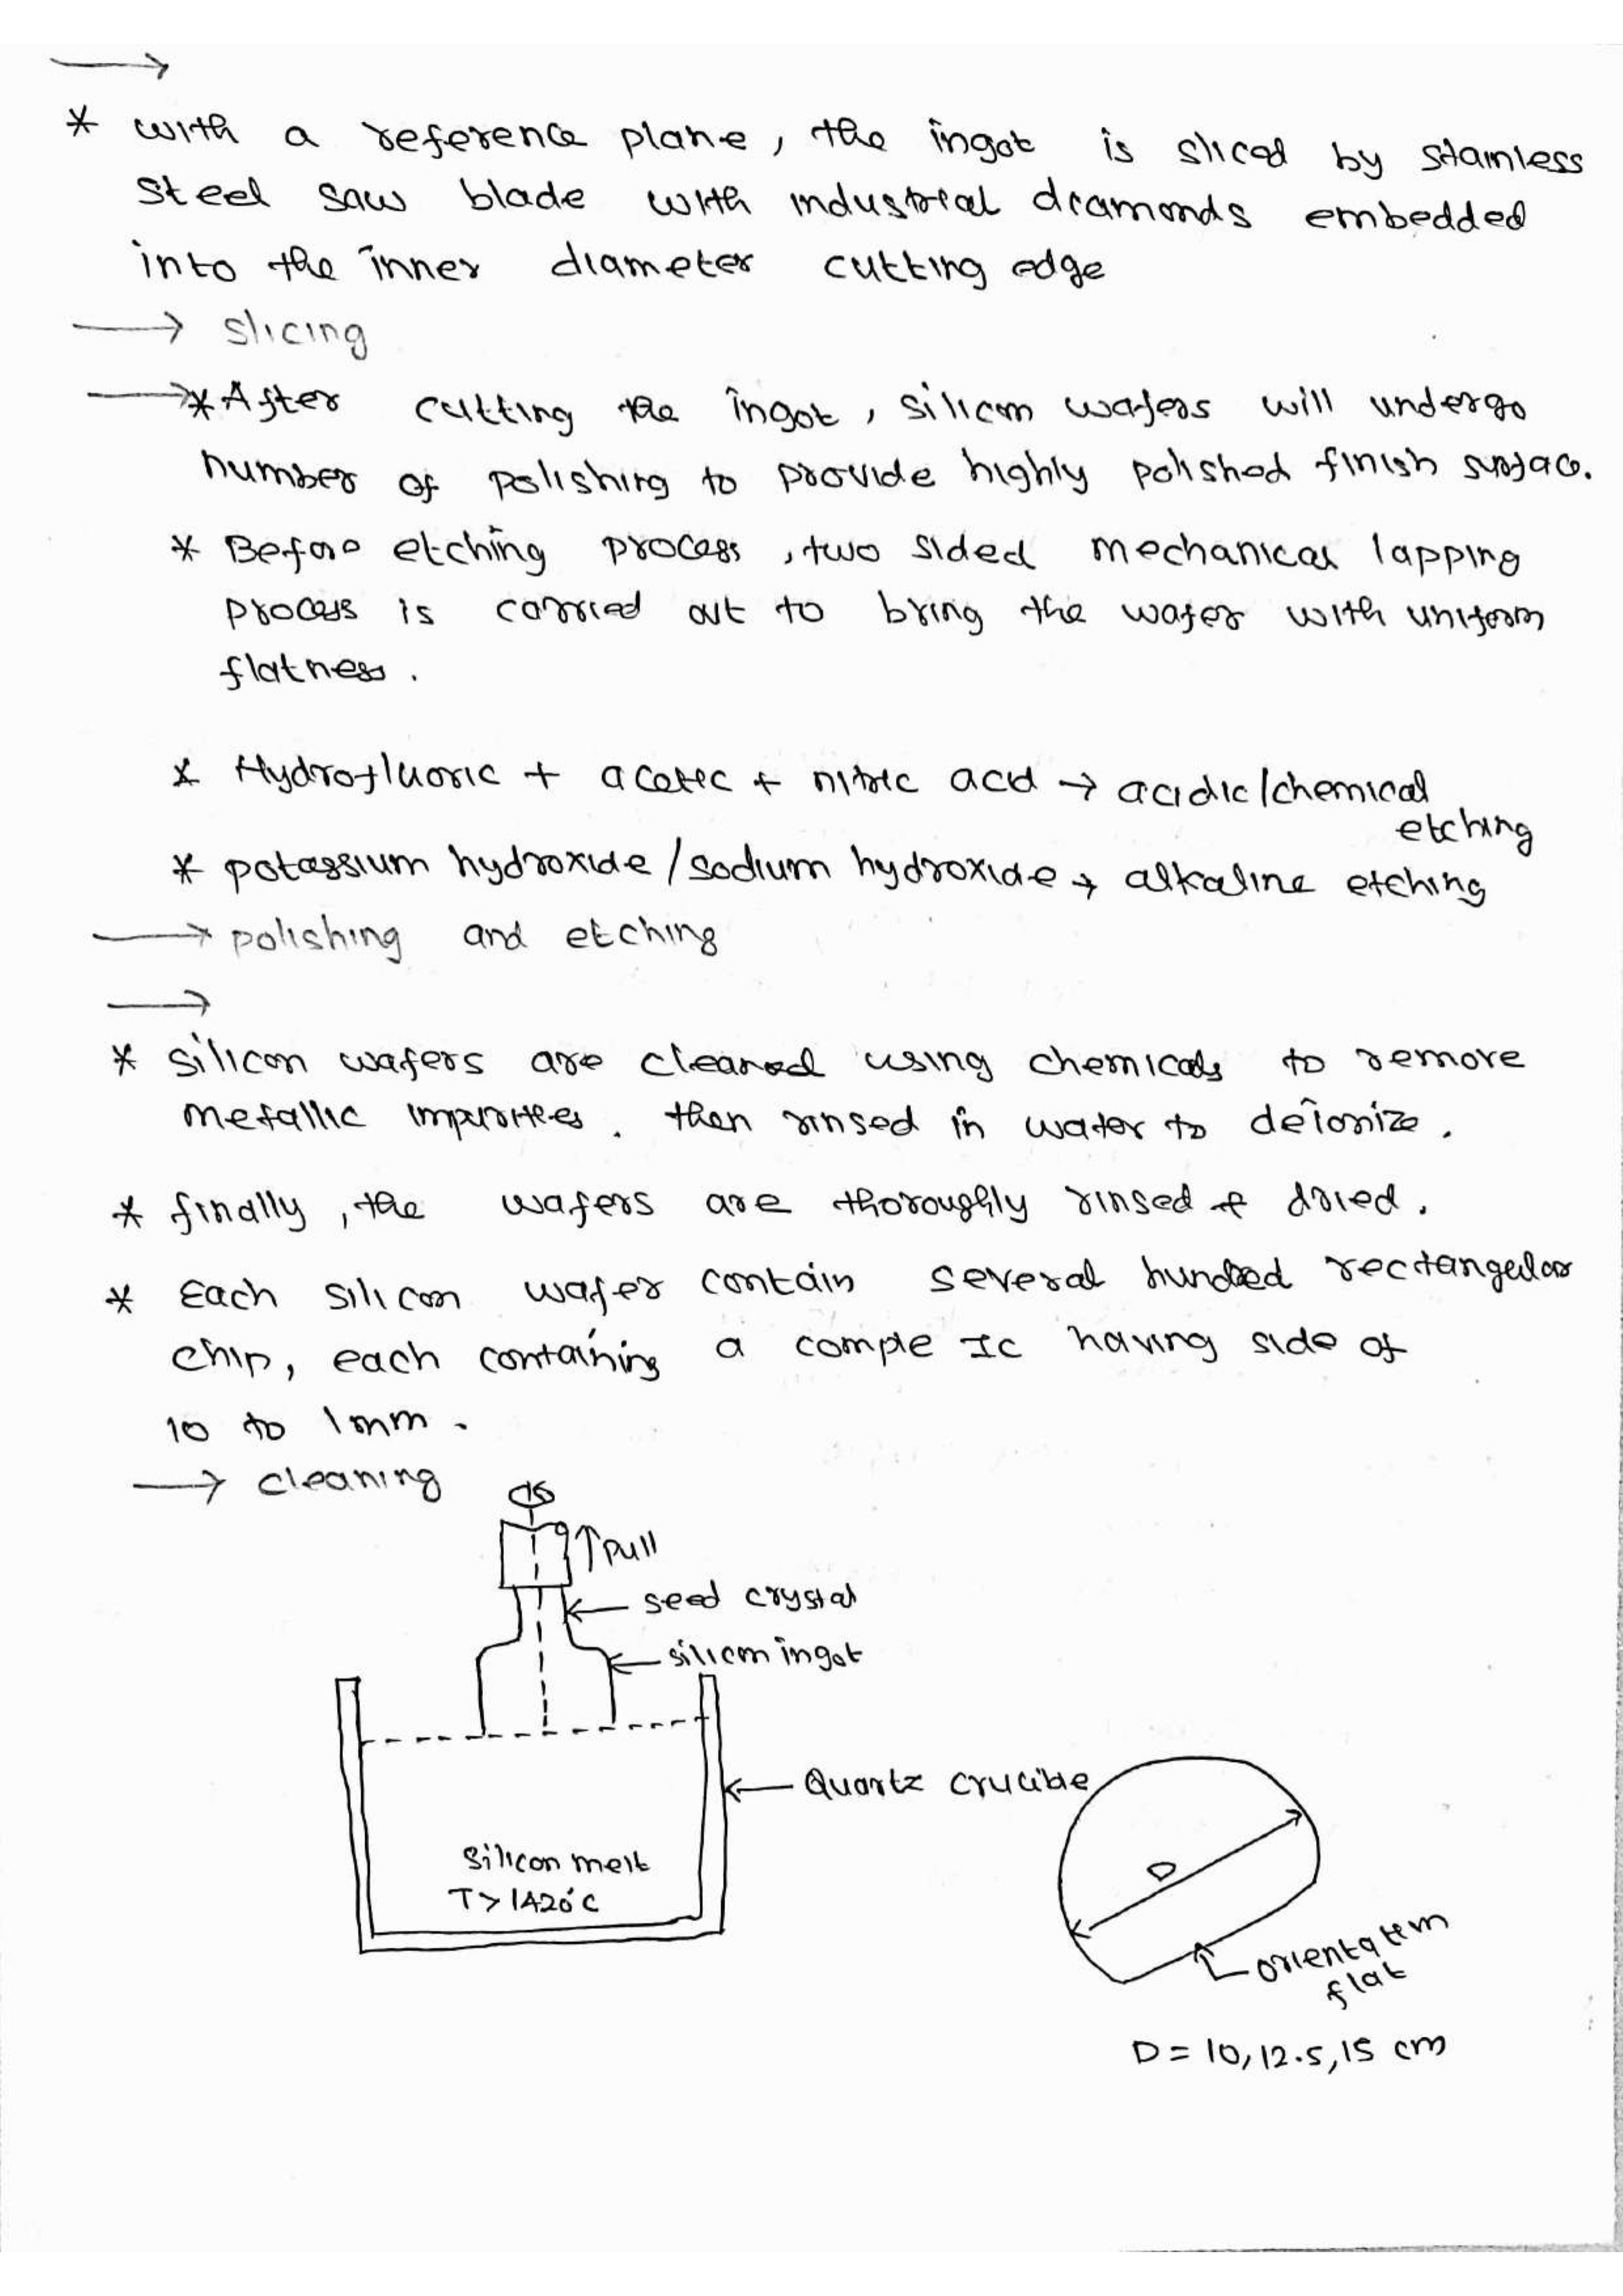 →
* with a reference plane, the ingot is sliced by stainless
steel saw blade with industrial diamonds embedded
into the inner diameter cutting edge
→ slicing
→ * After cutting the ingot, silicon wafers will undergo
number of polishing to provide highly polished finish surface.
* Before etching process, two sided mechanical lapping
process is carried out to bring the wafer with uniform
flatness.
* Hydrofluoric + acetic + nitric acid → acidic/chemical
etching
* potassium hydroxide/sodium hydroxide → alkaline etching
→ polishing and etching
→
* silicon wafers are cleaned using chemicals to remove
metallic impurities. then rinsed in water to deionize.
* finally, the wafers are thoroughly rinsed & dried.
* Each silicon wafer contain several hundred rectangular
chip, each containing a comple Ic having side of
10 to 1mm.
→ cleaning
↑ pull
← seed crystal
← silicon ingot
← Quartz crucible
silicon melt
T > 1420°C
D
orientation
flat
D = 10, 12.5, 15 cm